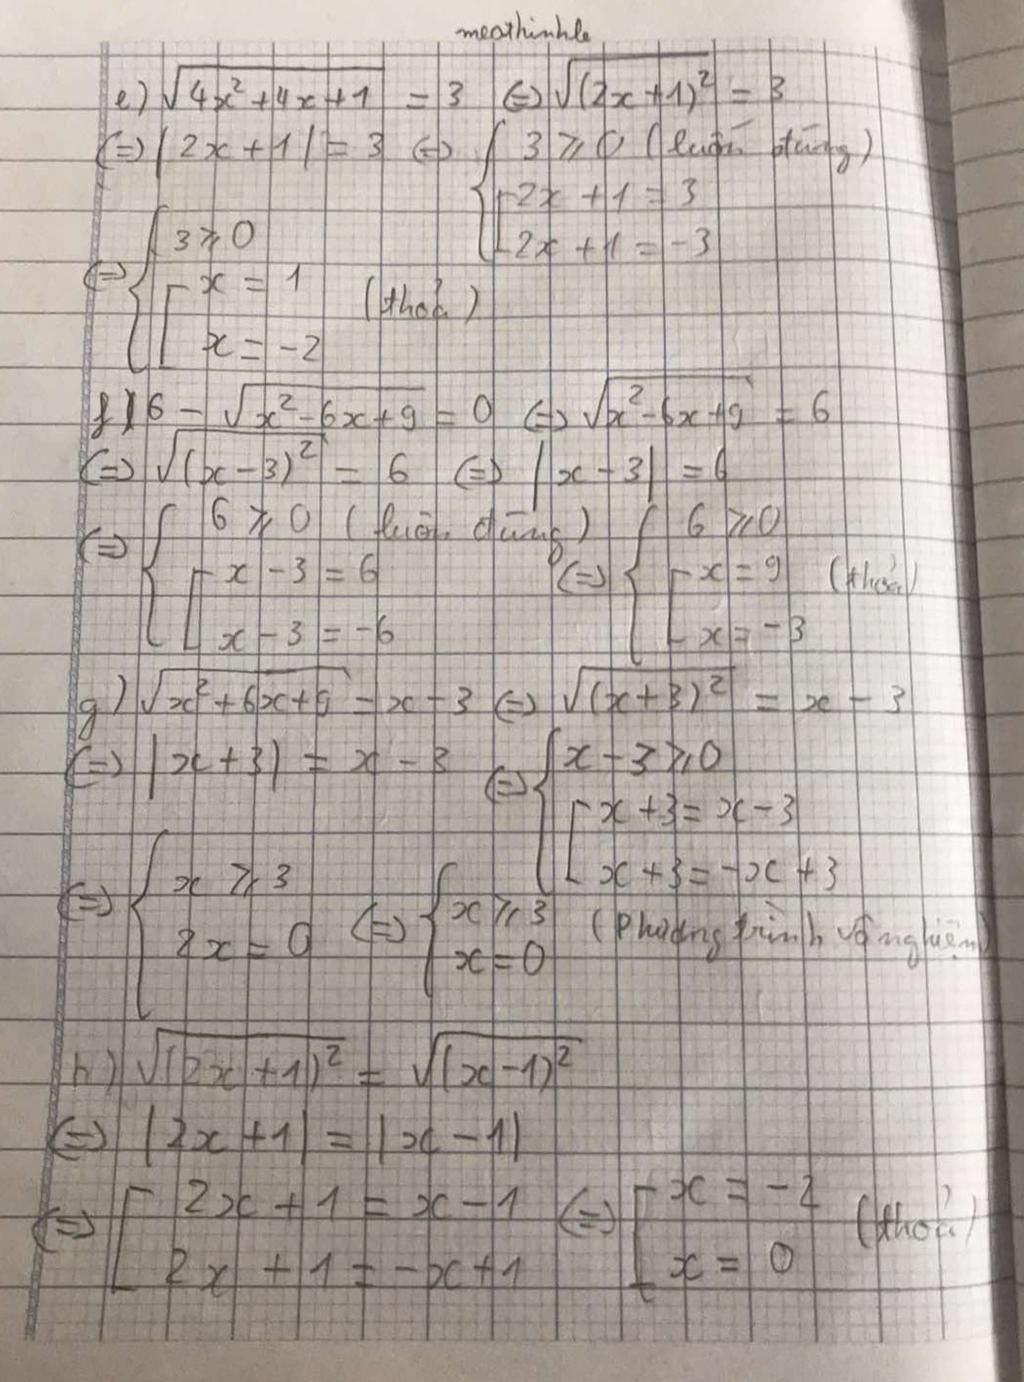 meothinhle
e) √(4x² + 4x + 1) = 3 (=) √((2x + 1)²) = 3
(=) |2x + 1| = 3 (=) { 3 ≥ 0 (luôn đúng)
[ 2x + 1 = 3
2x + 1 = -3
(=) { 3 ≥ 0
[ x = 1 (thoả)
x = -2
f) 6 - √(x² - 6x + 9) = 0 (=) √(x² - 6x + 9) = 6
(=) √((x - 3)²) = 6 (=) |x - 3| = 6
(=) { 6 ≥ 0 (luôn đúng) (=) { 6 ≥ 0
[ x - 3 = 6 [ x = 9 (thoả)
x - 3 = -6 x = -3
g) √(x² + 6x + 9) = x - 3 (=) √((x + 3)²) = x - 3
(=) |x + 3| = x - 3 (=) { x - 3 ≥ 0
[ x + 3 = x - 3
x + 3 = -x + 3
(=) { x ≥ 3 (=) { x ≥ 3 (Phương trình vô nghiệm)
2x = 0 x = 0
h) √((2x + 1)²) = √((x - 1)²)
(=) |2x + 1| = |x - 1|
(=) [ 2x + 1 = x - 1 (=) [ x = -2 (thoả)
2x + 1 = -x + 1 x = 0